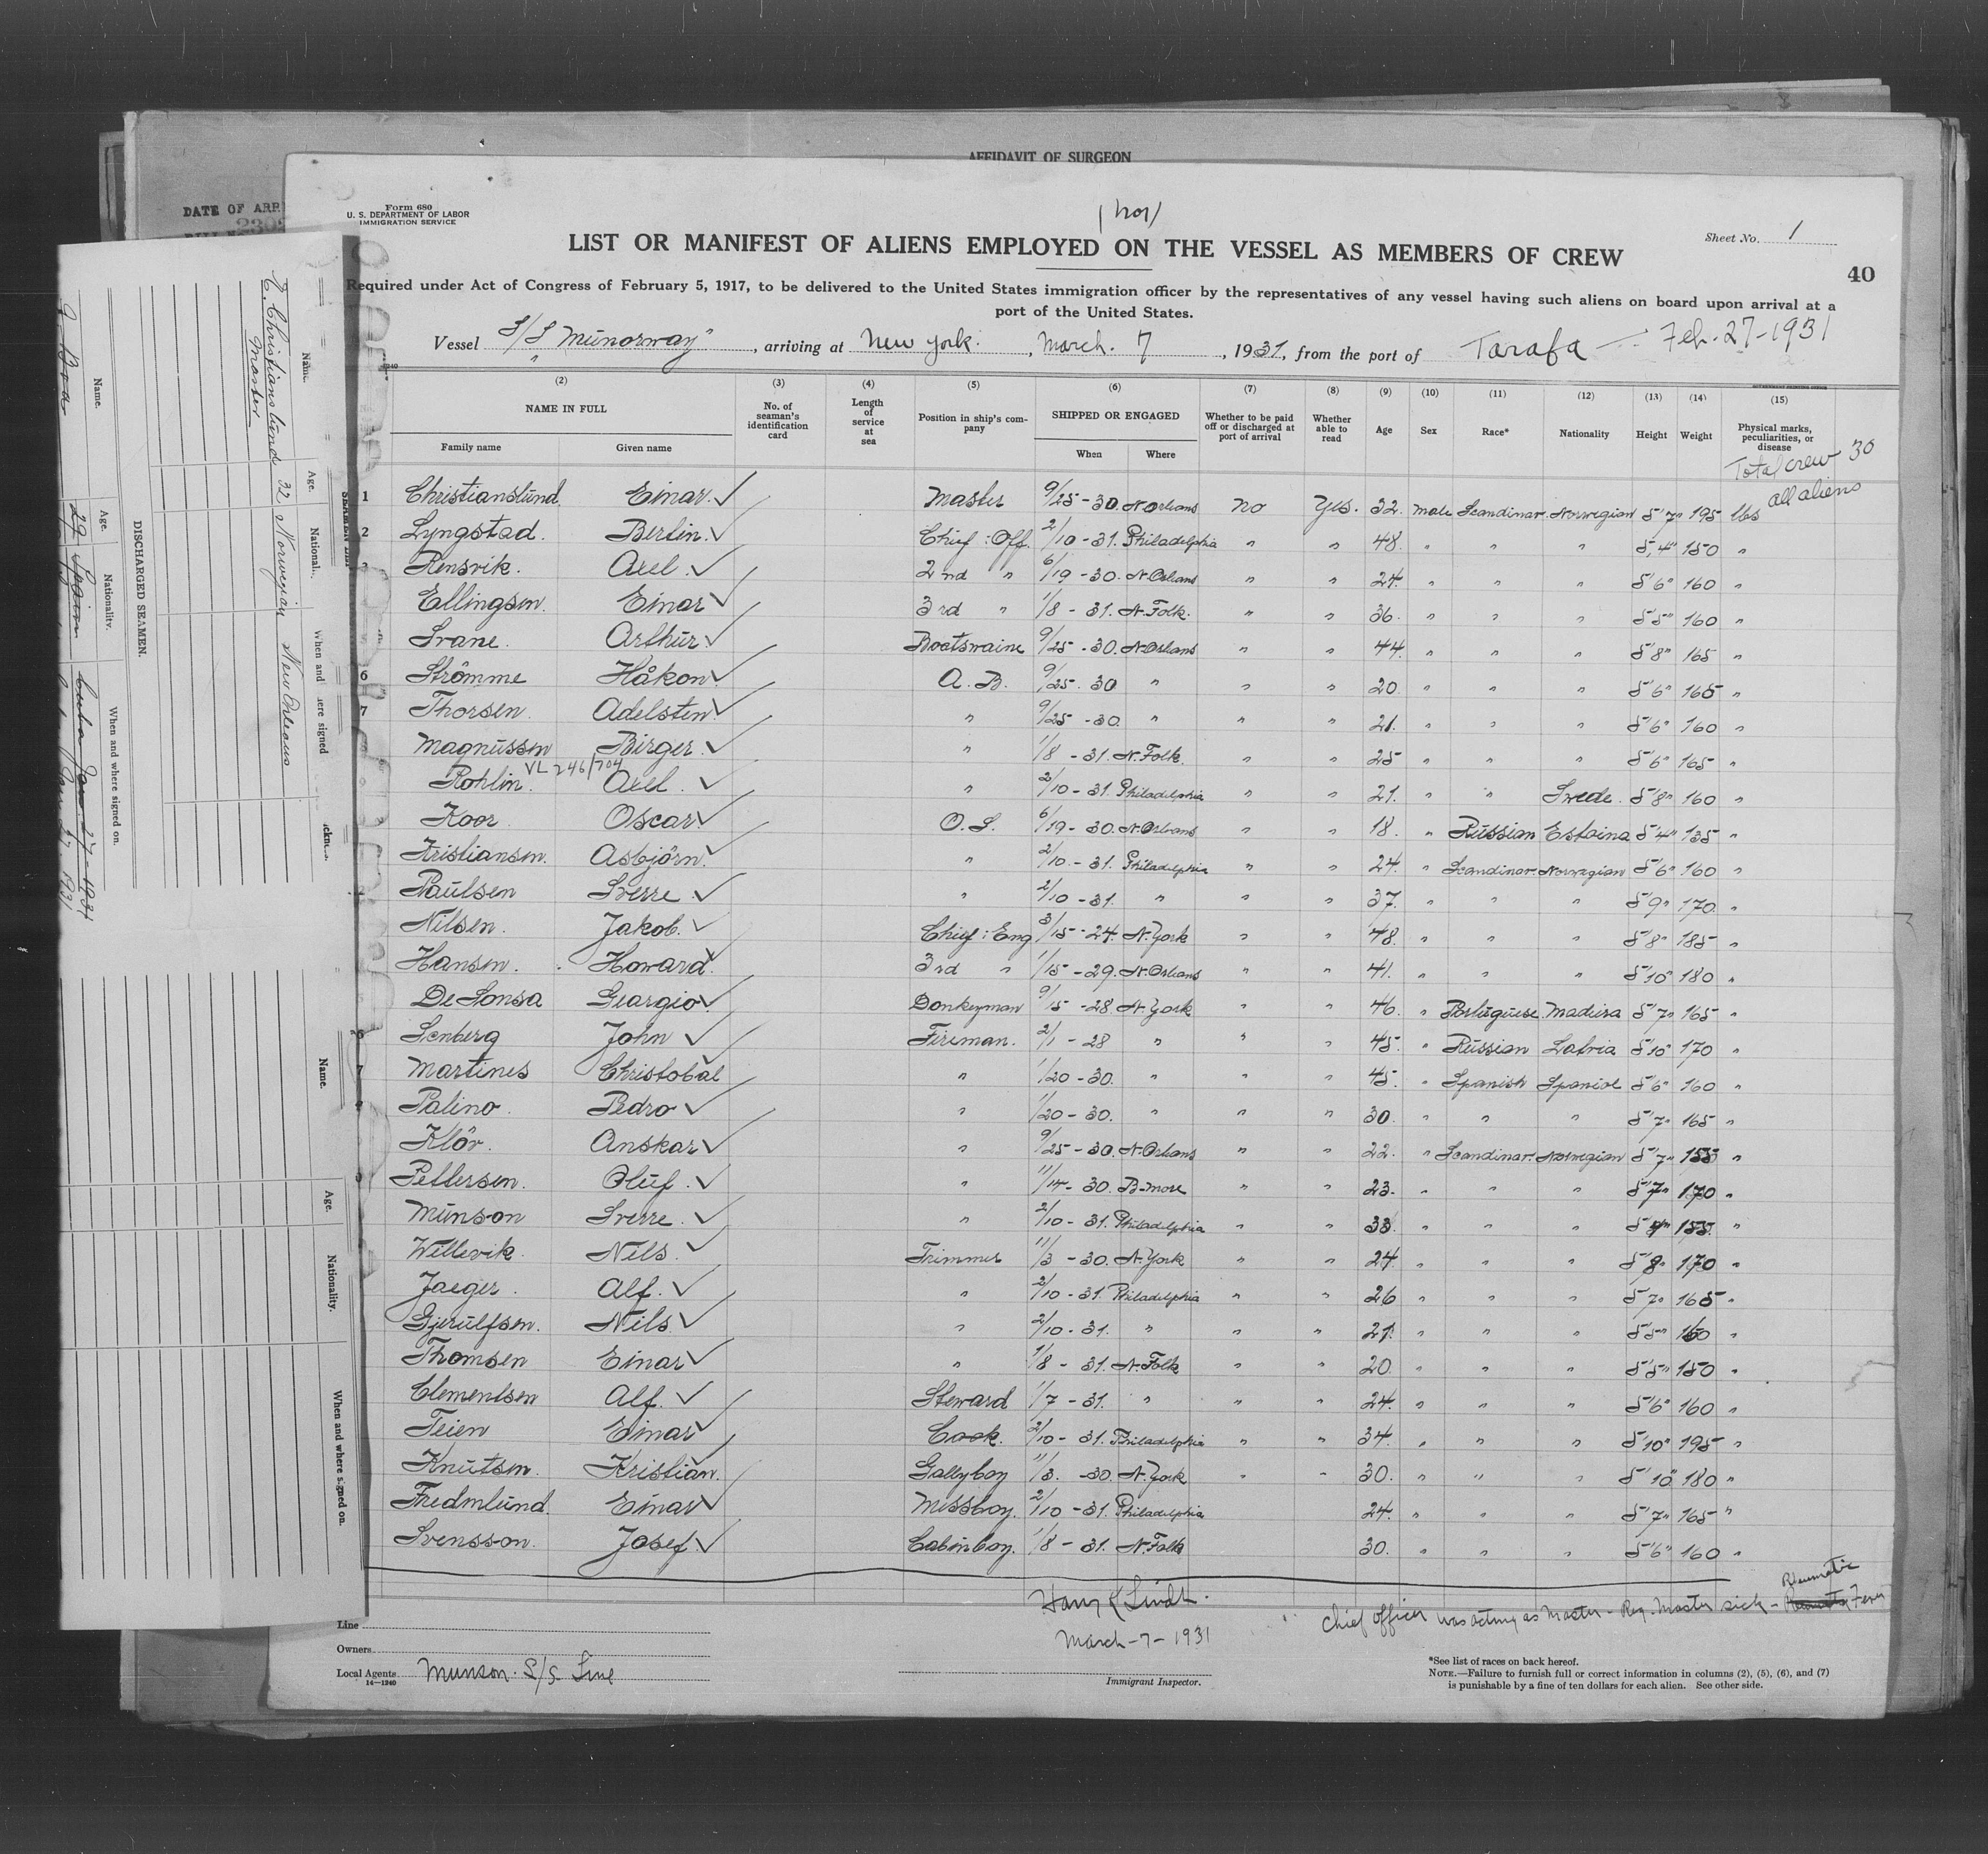 AFFIDAVIT OF SURGEON
DATE OF ARR
Form 680
U. S. DEPARTMENT OF LABOR
IMMIGRATION SERVICE
(nor)
LIST OR MANIFEST OF ALIENS EMPLOYED ON THE VESSEL AS MEMBERS OF CREW
Sheet No. 1
40
Required under Act of Congress of February 5, 1917, to be delivered to the United States immigration officer by the representatives of any vessel having such aliens on board upon arrival at a
port of the United States.
Vessel S/S "Munorway", arriving at New York., March. 7, 1931, from the port of Tarafa - Feb. 27-1931
(2) (3) (4) (5) (6) (7) (8) (9) (10) (11) (12) (13) (14) (15)
NAME IN FULL
Family name Given name
No. of seaman's identification card
Length of service at sea
Position in ship's company
SHIPPED OR ENGAGED
When Where
Whether to be paid off or discharged at port of arrival
Whether able to read
Age Sex Race* Nationality Height Weight
Physical marks, peculiarities, or disease
Total crew 30
all aliens
1 Christianslund. Einar. Master 9/25-30. N Orleans no Yes. 32. male Scandinav. Norwegian 5'7" 195 lbs
2 Lyngstad. Berlin. Chief: Off. 2/10-31. Philadelphia " " 48. " " " 5,4" 150 "
3 Rensvik. Axel. 2nd " 6/19-30. N. Orleans " " 24. " " " 5'6" 160 "
Ellingsen. Einar 3rd " 1/8-31. N. Folk. " " 36. " " " 5'5" 160 "
Svane. Arthur Bootswaine 9/25-30. N. Orleans " " 44. " " " 5'8" 165 "
6 Strömme Håkon. A. B. 9/25. 30 " " " 20. " " " 5'6" 165 "
7 Thorsen. Adelsten. " 9/25-30. " " " 21. " " " 5'6" 160 "
Magnussen Birger. " 1/8-31. N. Folk. " " 25 " " " 5'6" 165 "
VL 246/704
Rohlin. Axel. " 2/10-31. Philadelphia " " 21. " " Swede. 5'8" 160 "
Koor. Oscar. O. S. 6/19-30. N. Orleans " " 18. " Russian Estoina 5'4" 135 "
Kristiansen. Asbjörn. " 2/10.-31. Philadelphia " " 24. " Scandinav. Norwegian 5'6" 160 "
Paulsen Sverre. " 2/10-31. " " " 37. " " " 5'9" 170. "
Nilsen. Jakob. Chief: Eng 3/15-24. N. York " " 48. " " " 5'8" 185 "
Hansen. Howard. 3rd " 1/15-29. N. Orleans " " 41. " " " 5'10" 180 "
De Sonsa Geargio. Donkeyman 9/15-28. N. York " " 46. " Portuguese. Madeira 5'7" 165 "
6 Senberg John Fireman. 2/1-28 " " " 45. " Russian Latvia 5'10" 170 "
7 Martines Christobal " 1/20-30. " " " 45. " Spanish Spaniol 5'6" 160 "
Palino. Pedro " 1/20-30. " " " 30. " " " 5'7" 165 "
Klör. Anskar " 9/25-30. N. Orleans " " 22. " Scandinav. Norwegian 5'7" 155 "
Pettersen. Oluf. " 11/14-30. B-more " " 23. " " " 5'7" 170 "
Munson Sverre. " 2/10-31. Philadelphia " " 33 " " " 5'4" 155. "
Willevik. Nils. Trimmer 11/3-30. N. York " " 24. " " " 5'8" 170 "
Jaeger. Alf. " 2/10-31. Philadelphia " " 26 " " " 5'7" 165 "
Gjerulfsen. Nils. " 2/10-31. " " " 21. " " " 5'5" 150 "
Thomsen Einar " 1/8-31. N. Folk " " 20. " " " 5'5" 150 "
Clementsen Alf. Steward 1/7-31. " " " 24. " " " 5'6" 160 "
Teien Einar Cook. 2/10-31. Philadelphia " " 34. " " " 5'10" 195 "
Knutsen. Kristian. Gallyboy 11/3.-30. N. York " " 30. " " " 5'10" 180 "
Fredmlund. Einar Messboy. 2/10-31. Philadelphia 24. " " " 5'7" 165 "
Svensson. Josef. Cabinboy. 1/8-31. N. Folk 30. " " " 5'6" 160 "
March-7-1931
Immigrant Inspector.
Chief officer was acting as Master - Reg. Master sick - Rheumatic Fever
Line
Owners
Local Agents Munson S/S Line
14-1240
*See list of races on back hereof.
NOTE.—Failure to furnish full or correct information in columns (2), (5), (6), and (7)
is punishable by a fine of ten dollars for each alien. See other side.
Name. Age. Nationali.. When and where signed
E. Christianslund 32 Norwegian New Orleans
Master
DISCHARGED SEAMEN.
Name. Age. Nationality. When and where signed on.
29 Spain Cuba Jan. 27-1931
Name. Age. Nationality. When and where signed on.